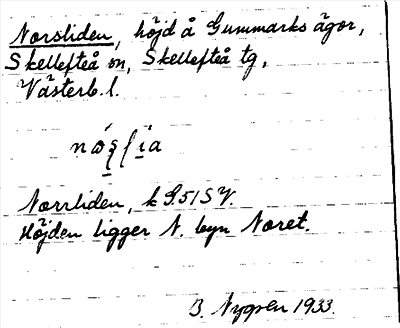 Norsliden, höjd å Gummarks ägor,
Skellefteå sn, Skellefteå tg,
Västerb. l.
Norrliden, k G.51 S V.
Höjden ligger N. byn Noret.
B. Nygren 1933.